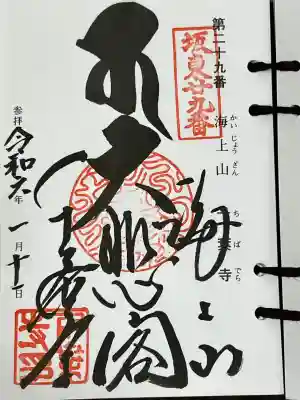 第二十九番 海上山 千葉寺
かいじょうざん ちばでら
坂東廿九番
海上山
大悲閣
千葉寺
参拝 令和六年 一月十一日